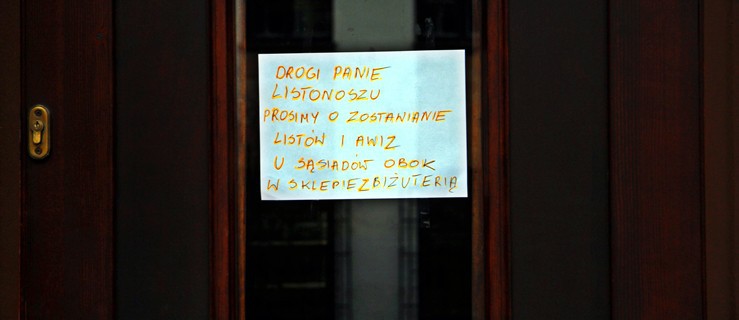 DROGI PANIE
LISTONOSZU
PROSIMY O ZOSTAWIANIE
LISTÓW I AWIZ
U SĄSIADÓW OBOK
W SKLEPIE Z BIŻUTERIĄ